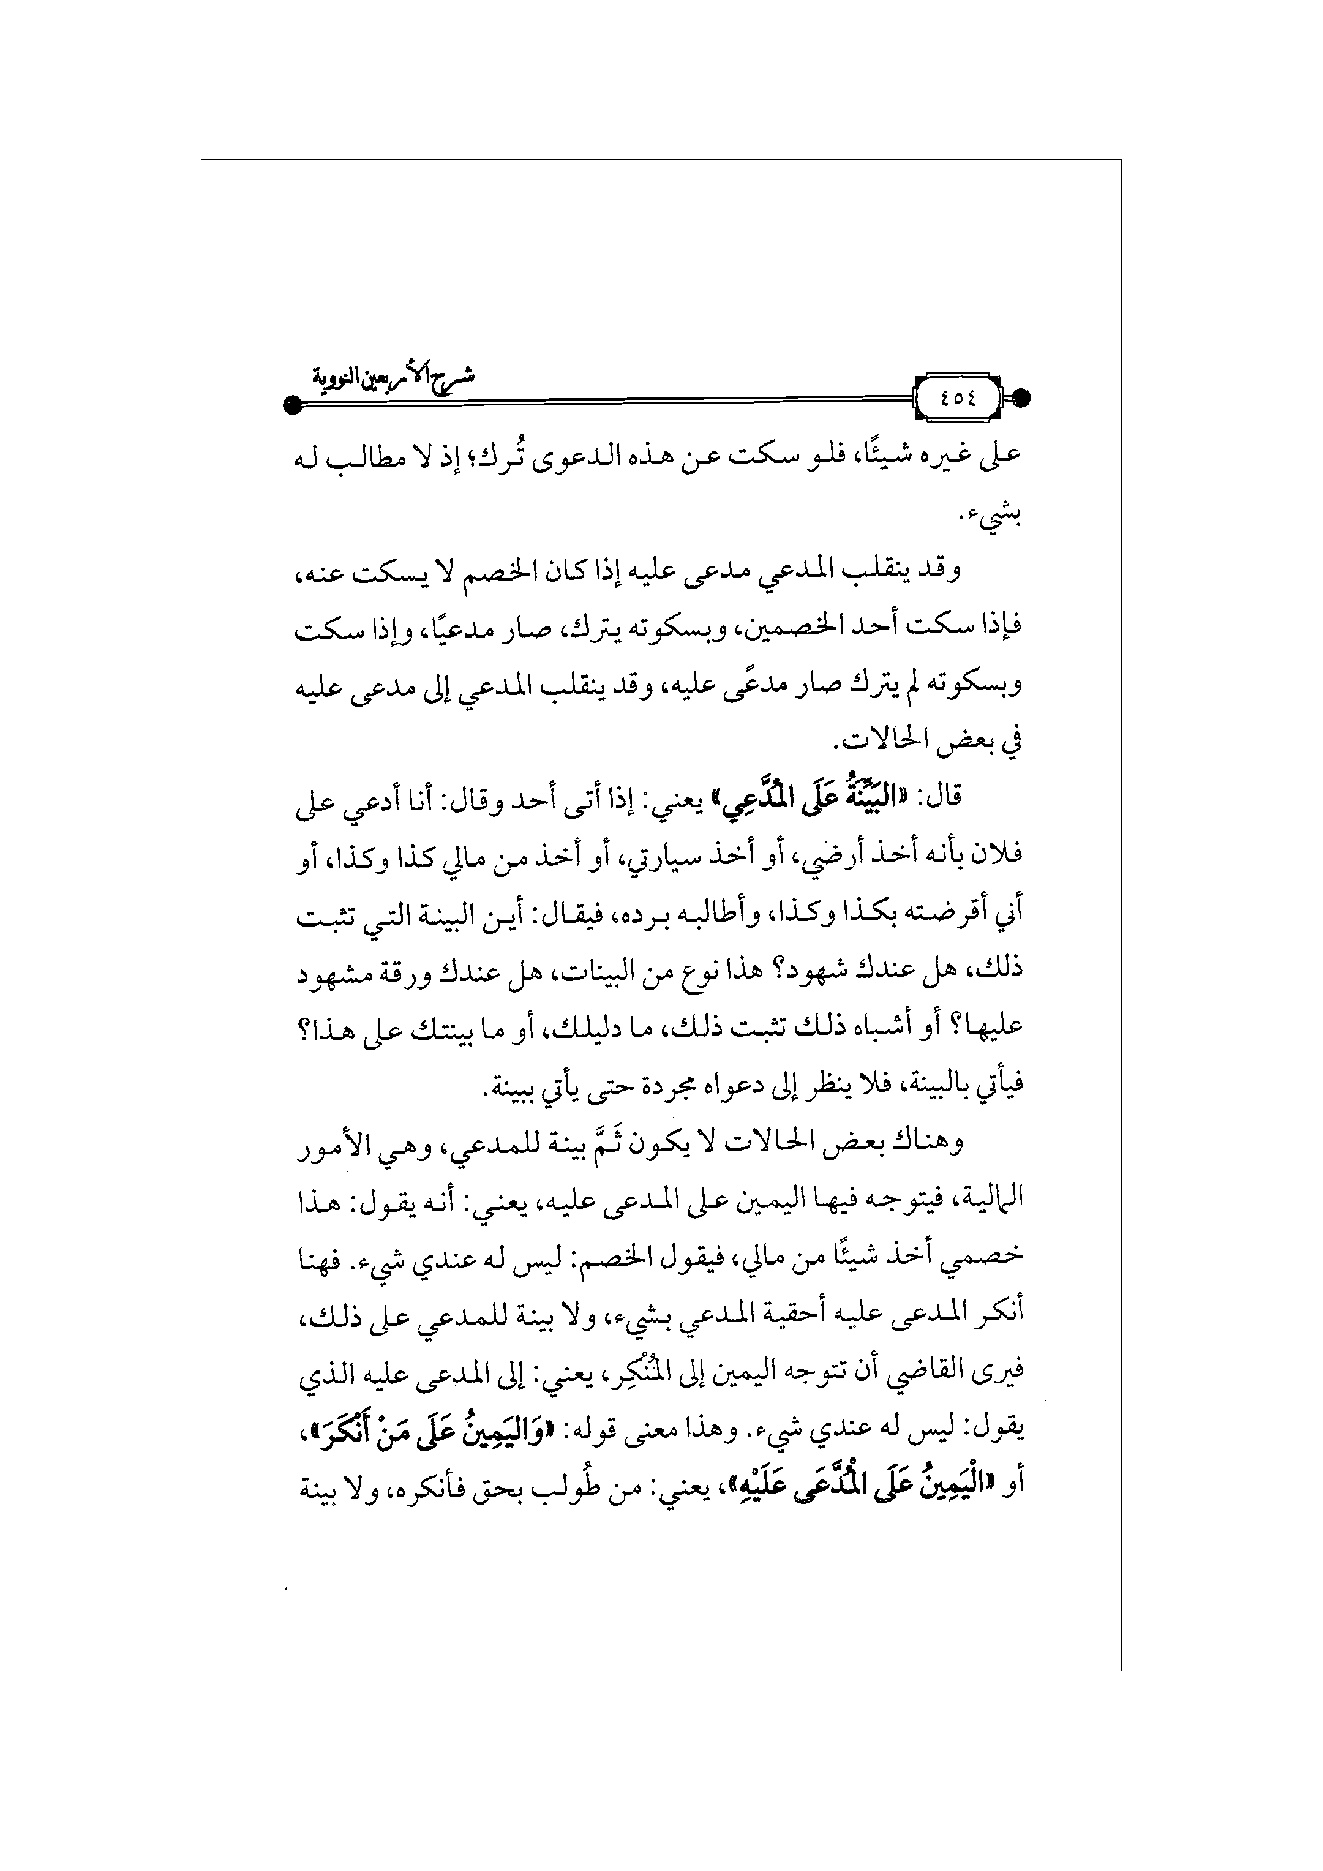 شرح الأربعين النووية
٤٥٤
على غيره شيئًا، فلو سكت عن هذه الدعوى تُرك؛ إذ لا مطالب له
بشيء.
وقد ينقلب المدعي مدعى عليه إذا كان الخصم لا يسكت عنه،
فإذا سكت أحد الخصمين، وبسكوته يترك، صار مدعيًا، وإذا سكت
وبسكوته لم يترك صار مدعًى عليه، وقد ينقلب المدعي إلى مدعى عليه
في بعض الحالات.
قال: «البَيِّنَةُ عَلَى المُدَّعِي» يعني: إذا أتى أحد وقال: أنا أدعي على
فلان بأنه أخذ أرضي، أو أخذ سيارتي، أو أخذ من مالي كذا وكذا، أو
أني أقرضته بكذا وكذا، وأطالبه برده، فيقال: أين البينة التي تثبت
ذلك، هل عندك شهود؟ هذا نوع من البينات، هل عندك ورقة مشهود
عليها؟ أو أشباه ذلك تثبت ذلك، ما دليلك، أو ما بينتك على هذا؟
فيأتي بالبينة، فلا ينظر إلى دعواه مجردة حتى يأتي ببينة.
وهناك بعض الحالات لا يكون ثَمَّ بينة للمدعي، وهي الأمور
المالية، فيتوجه فيها اليمين على المدعى عليه، يعني: أنه يقول: هذا
خصمي أخذ شيئًا من مالي، فيقول الخصم: ليس له عندي شيء. فهنا
أنكر المدعى عليه أحقية المدعي بشيء، ولا بينة للمدعي على ذلك،
فيرى القاضي أن تتوجه اليمين إلى المُنْكِر، يعني: إلى المدعى عليه الذي
يقول: ليس له عندي شيء. وهذا معنى قوله: «وَاليَمِينُ عَلَى مَنْ أَنْكَرَ»،
أو «الْيَمِينُ عَلَى المُدَّعَى عَلَيْهِ»، يعني: من طُولب بحق فأنكره، ولا بينة